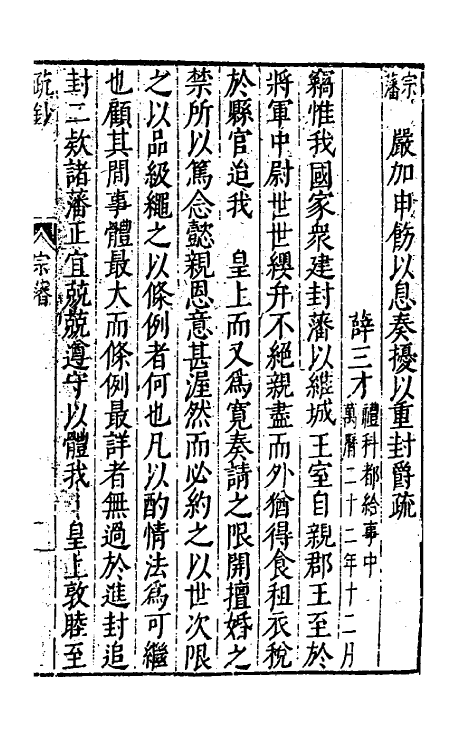 宗藩
嚴加申飭以息奏擾以重封爵疏
薛三才
禮科都給事中
萬曆二十二年十二月
竊惟我國家衆建封藩以維城王室自親郡王至於
將軍中尉世世纓弁不絕親盡而外猶得食租衣稅
於縣官迨我 皇上而又爲寬奏請之限開擅婚之
禁所以篤念懿親恩意甚渥然而必約之以世次限
之以品級繩之以條例者何也凡以酌情法爲可繼
也顧其間事體最大而條例最詳者無過於進封追
封二欵諸藩正宜兢兢遵守以體我 皇上敦睦至
疏鈔
宗藩